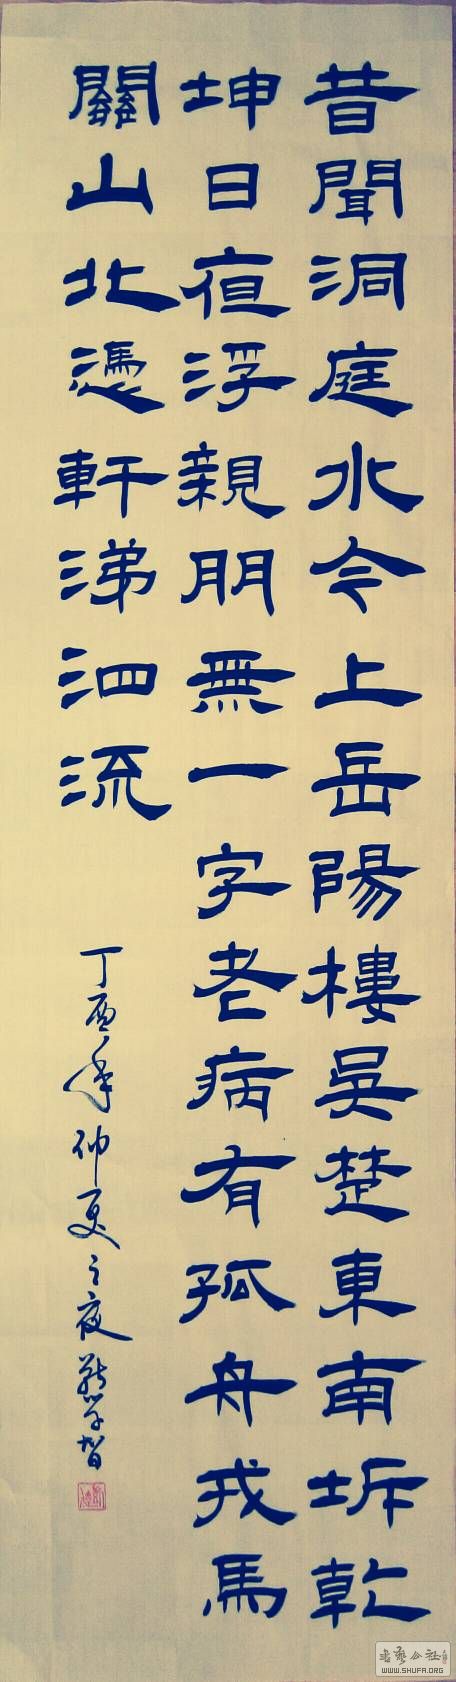 昔聞洞庭水今上岳陽樓吳楚東南坼乾
坤日夜浮親朋無一字老病有孤舟戎馬
關山北憑軒涕泗流
丁酉年仲夏之夜
书艺公社
WWW.SHUFA.ORG